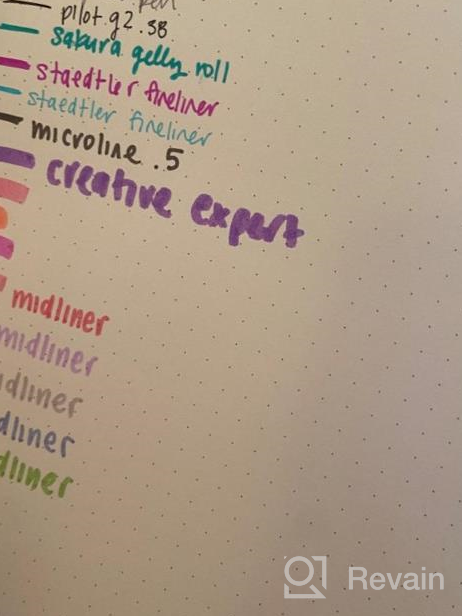 pen
pilot g2 .38
sakura gelly roll
staedtler fineliner
staedtler fineliner
microline .5
creative expert
midliner
midliner
idliner
dliner
dliner
Revain